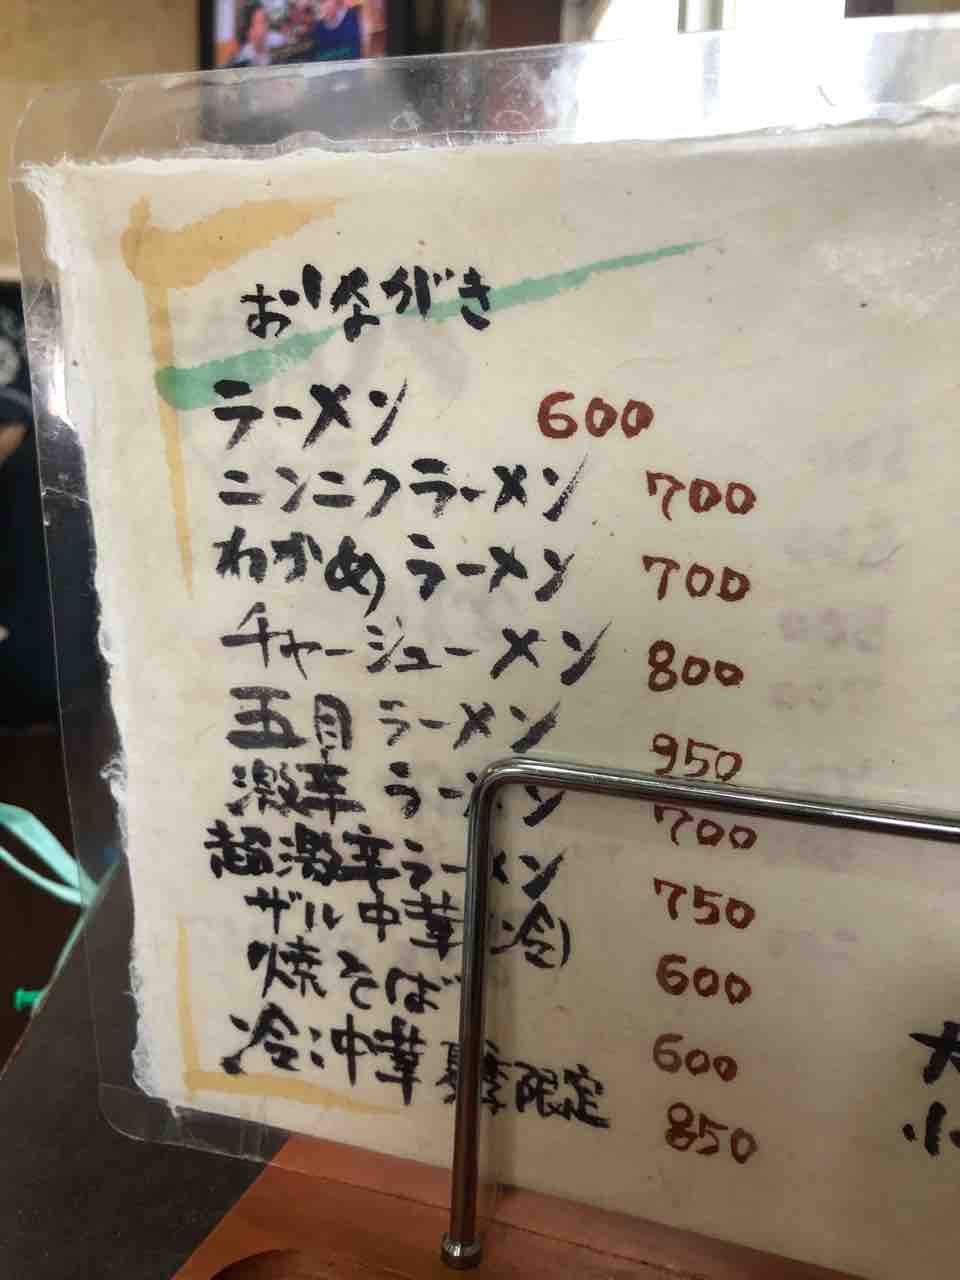 おしながき
ラーメン 600
ニンニクラーメン 700
わかめラーメン 700
チャーシューメン 800
五目ラーメン 950
激辛ラーメン 700
超激辛ラーメン 750
ザル中華(冷) 600
焼そば 600
冷し中華 夏季限定 850
大
小